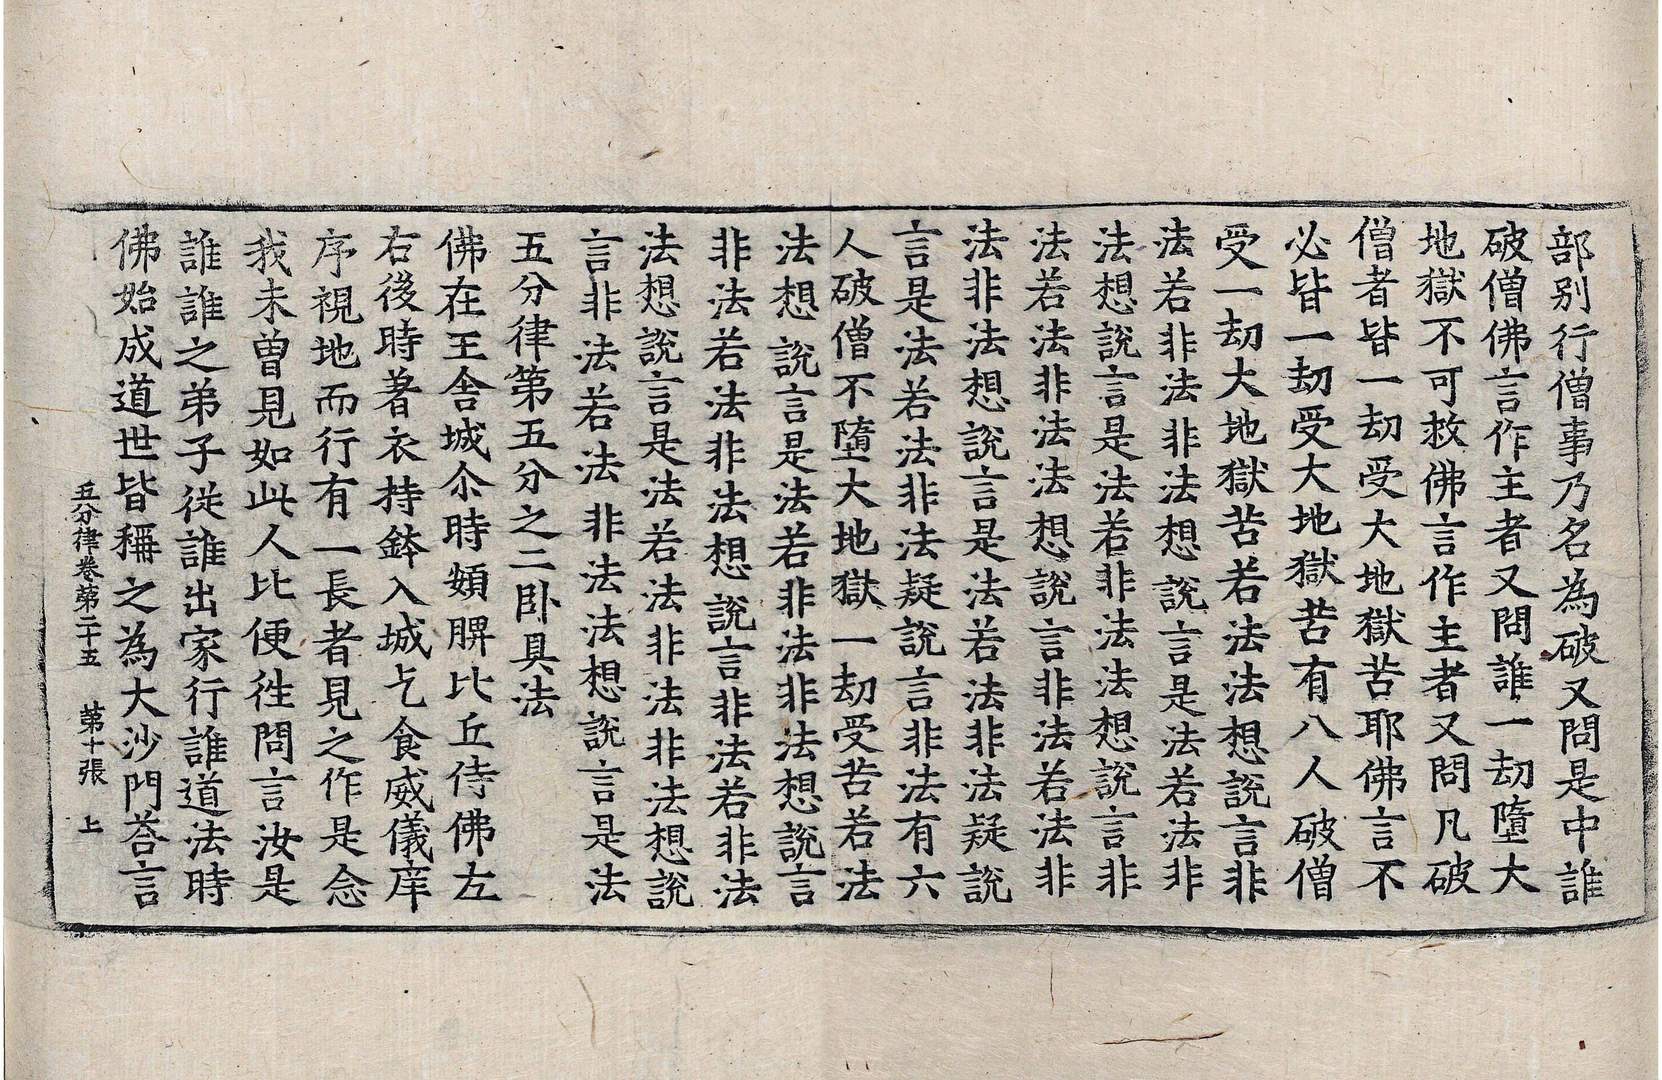 部別行僧事乃名為破又問是中誰
破僧佛言作主者又問誰一劫墮大
地獄不可救佛言作主者又問凡破
僧者皆一劫受大地獄苦耶佛言不
必皆一劫受大地獄苦有八人破僧
受一劫大地獄苦若法法想說言非
法若非法非法想說言是法若法非
法想說言是法若非法法想說言非
法若法非法法想說言非法若法非
法非法想說言是法若法非法疑說
言是法若法非法疑說言非法有六
人破僧不墮大地獄一劫受苦若法
法想說言是法若非法非法想說言
非法若法非法想說言非法若非法
法想說言是法若法非法非法想說
言非法若法非法法想說言是法
五分律第五分之二卧具法
佛在王舍城尒時頞髀比丘侍佛左
右後時著衣持鉢入城乞食威儀庠
序視地而行有一長者見之作是念
我未曾見如此人比便往問言汝是
誰誰之弟子從誰出家行誰道法時
佛始成道世皆稱之為大沙門荅言
五分律卷第二十五 第十張 上